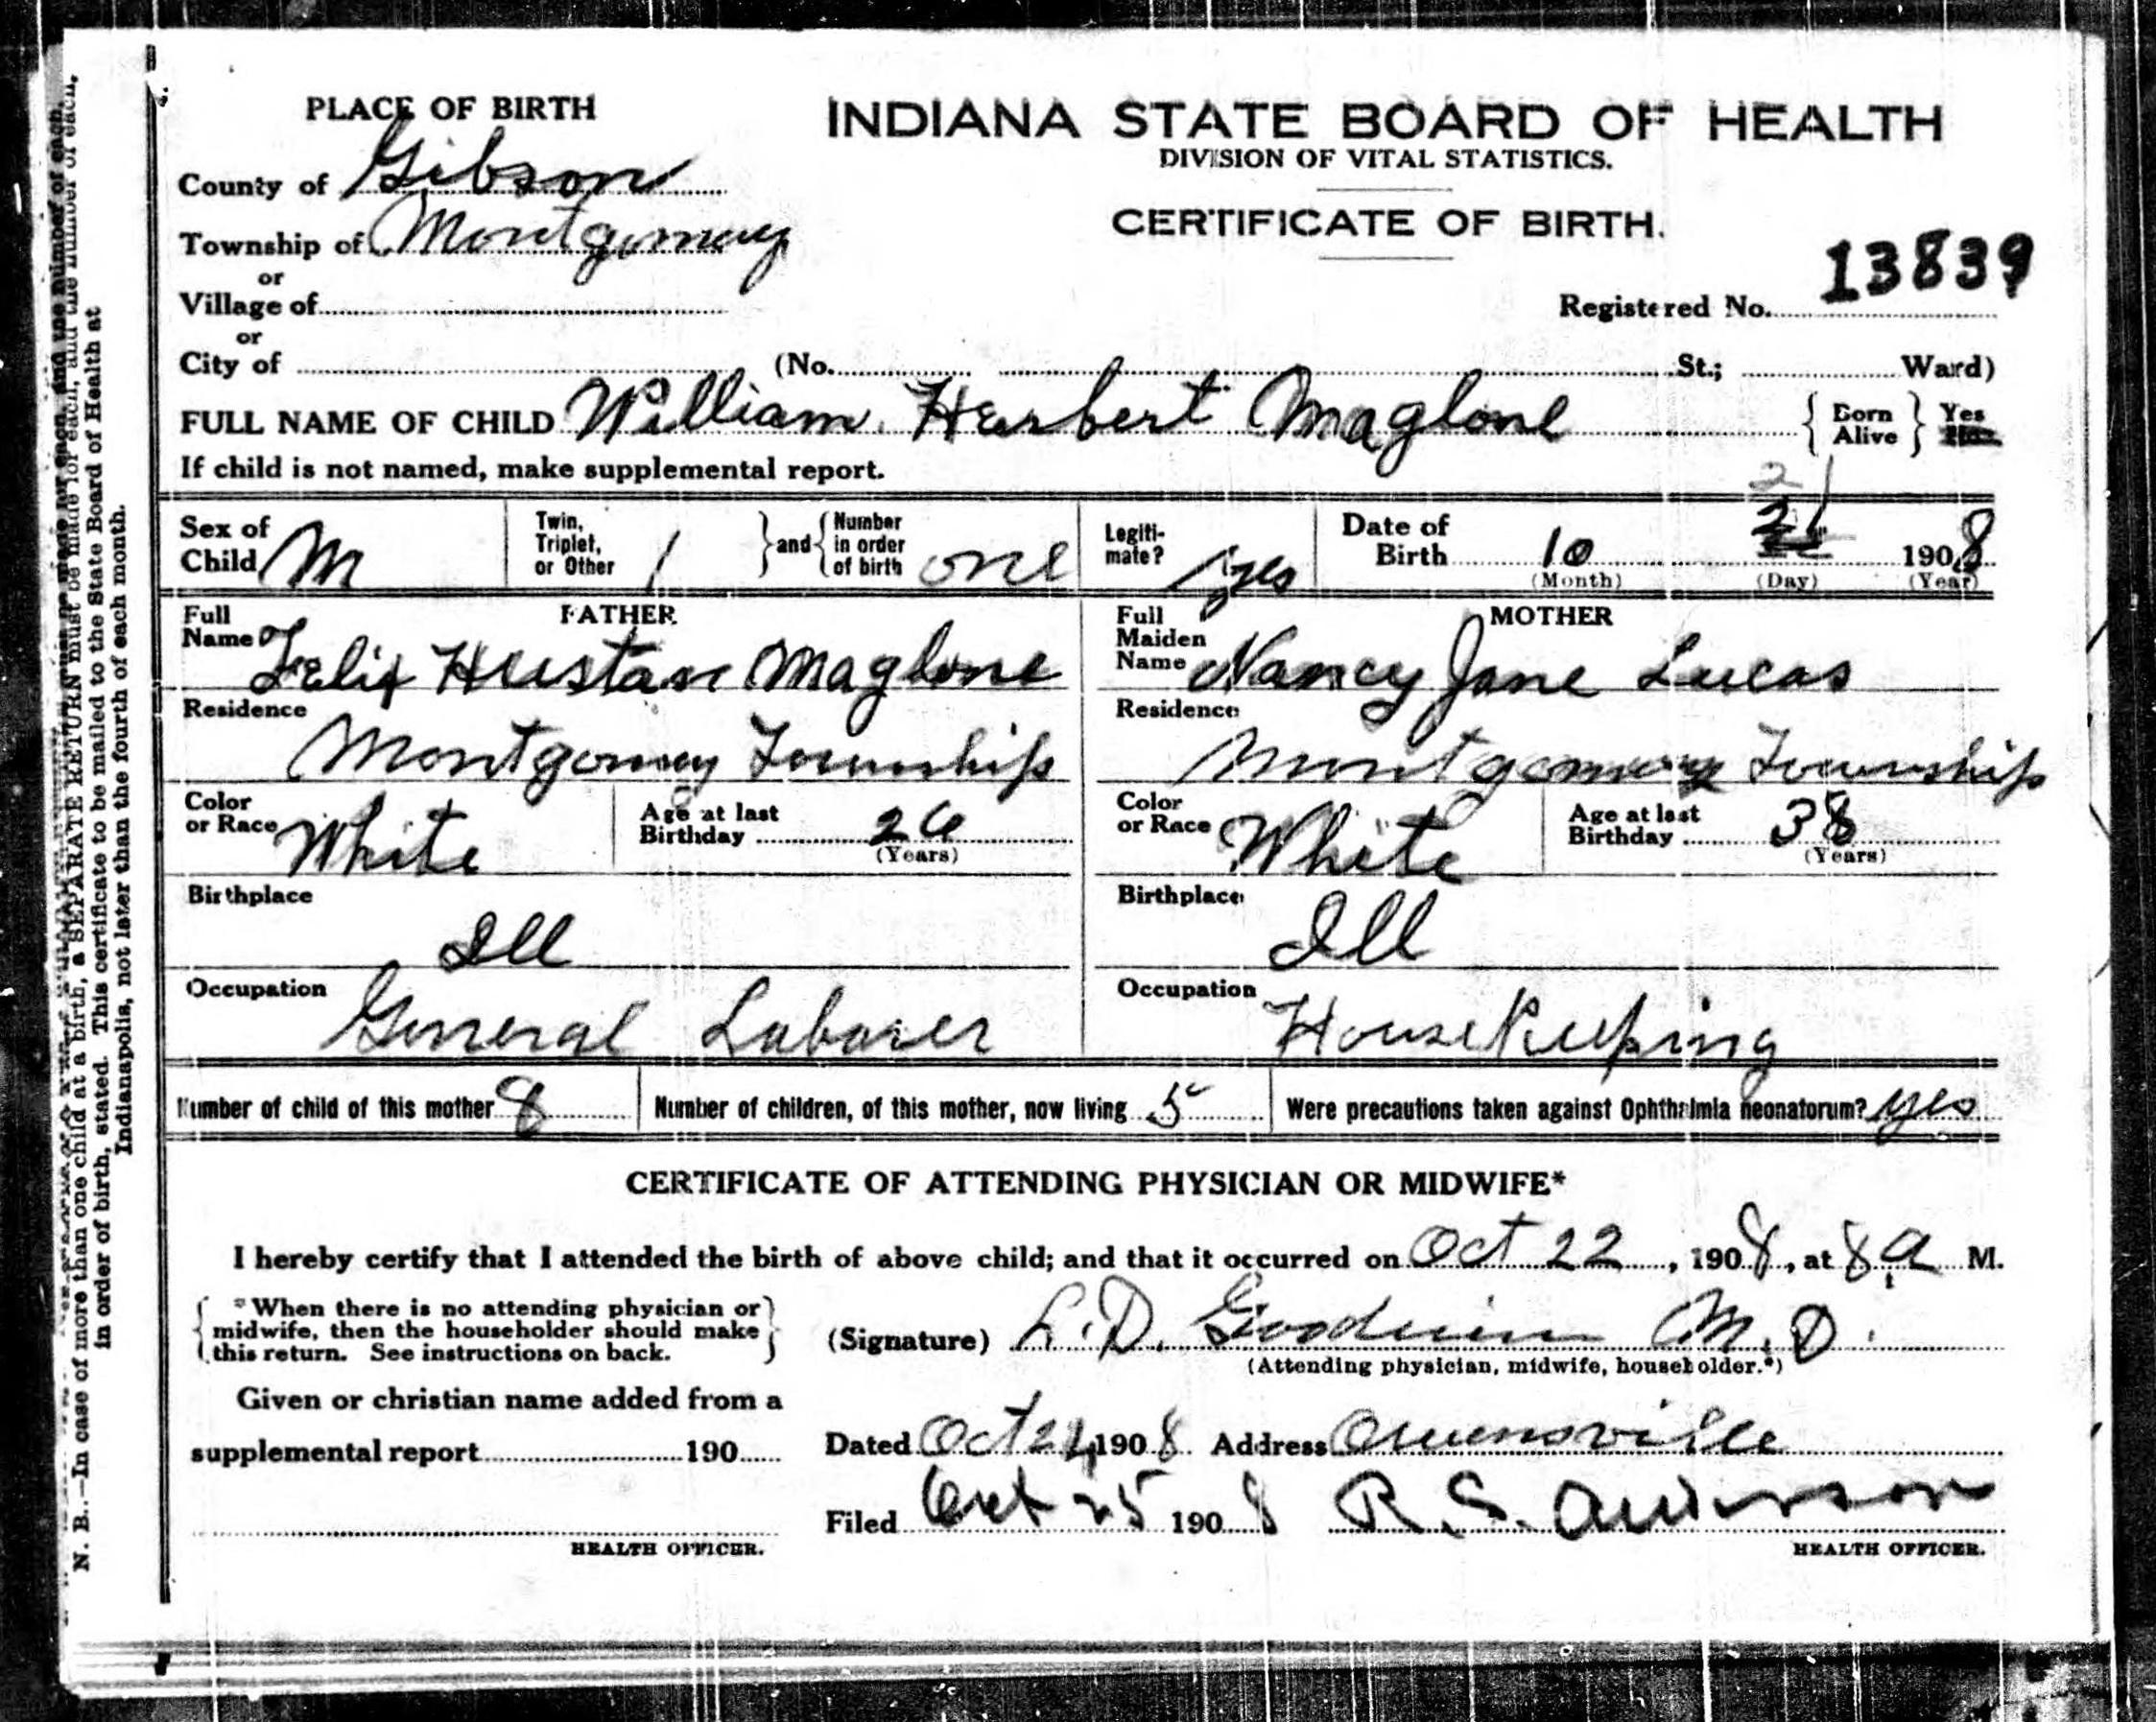 PLACE OF BIRTH
INDIANA STATE BOARD OF HEALTH
DIVISION OF VITAL STATISTICS.
CERTIFICATE OF BIRTH.
County of Gibson
Township of Montgomery
or
Village of
or
Registered No. 13839
City of (No. St.; Ward)
FULL NAME OF CHILD William Herbert Maglone { Born Alive } Yes
If child is not named, make supplemental report.
Sex of Child M
Twin, Triplet, or Other 1 } and { Number in order of birth one
Legitimate? yes
Date of Birth 10 21 1908
(Month) (Day) (Year)
FATHER
Full Name Felix Hustan Maglone
Residence
Montgomery Township
Color or Race White
Age at last Birthday 26
(Years)
Birthplace
Ill
Occupation
General Laborer
MOTHER
Full Maiden Name Nancy Jane Lucas
Residence
Montgomery Township
Color or Race White
Age at last Birthday 38
(Years)
Birthplace
Ill
Occupation
HouseKeeping
Number of child of this mother 8
Number of children, of this mother, now living 5
Were precautions taken against Ophthalmia neonatorum? yes
CERTIFICATE OF ATTENDING PHYSICIAN OR MIDWIFE*
I hereby certify that I attended the birth of above child; and that it occurred on Oct 22, 1908, at 8 a M.
{ *When there is no attending physician or
midwife, then the householder should make
this return. See instructions on back. }
(Signature) L.D. Goodwin M.D.
(Attending physician, midwife, householder.*)
Given or christian name added from a
supplemental report 190
HEALTH OFFICER.
Dated Oct 24 1908 Address Owensville
Filed Oct 25 1908 R. S. Anderson
HEALTH OFFICER.
N. B.—In case of more than one child at a birth, a SEPARATE RETURN must be made for each, and the number of each,
in order of birth, stated. This certificate to be mailed to the State Board of Health at
Indianapolis, not later than the fourth of each month.